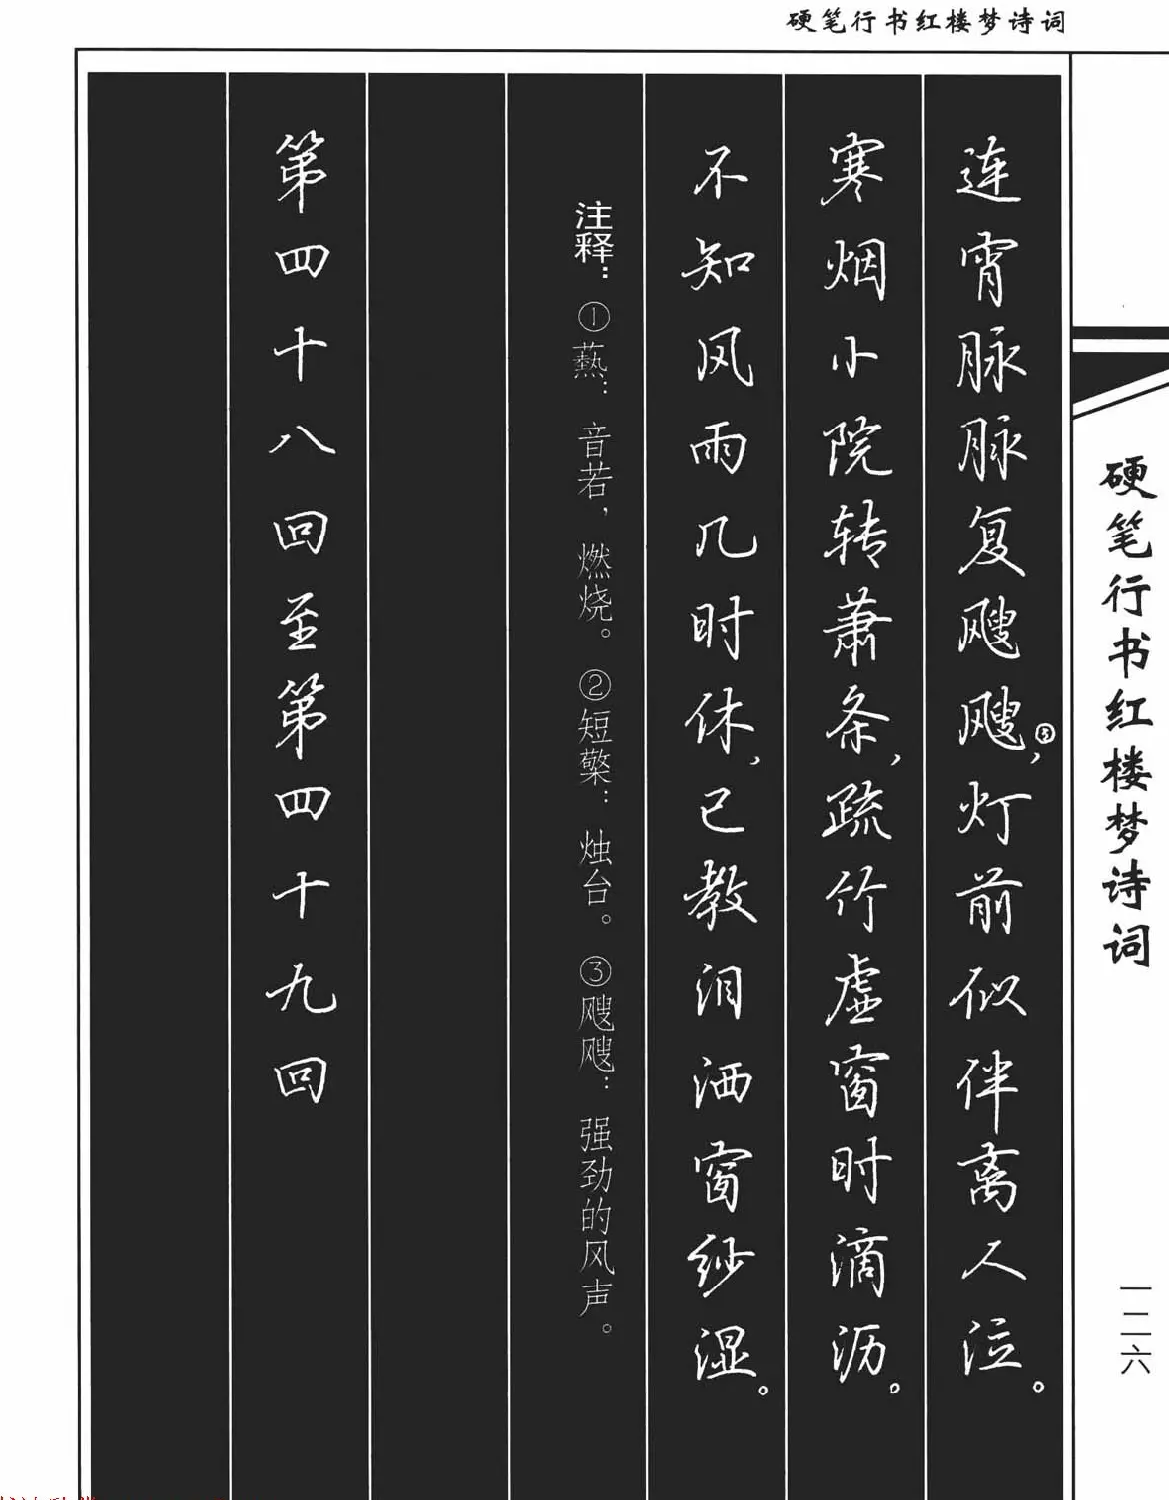 硬笔行书红楼梦诗词
连宵脉脉复飕飕③，灯前似伴离人泣。
寒烟小院转萧条，疏竹虚窗时滴沥。
不知风雨几时休，已教泪洒窗纱湿。
注释：①爇：音若，燃烧。②短檠：烛台。③飕飕：强劲的风声。
第四十八回至第四十九回
硬笔行书红楼梦诗词
一二六